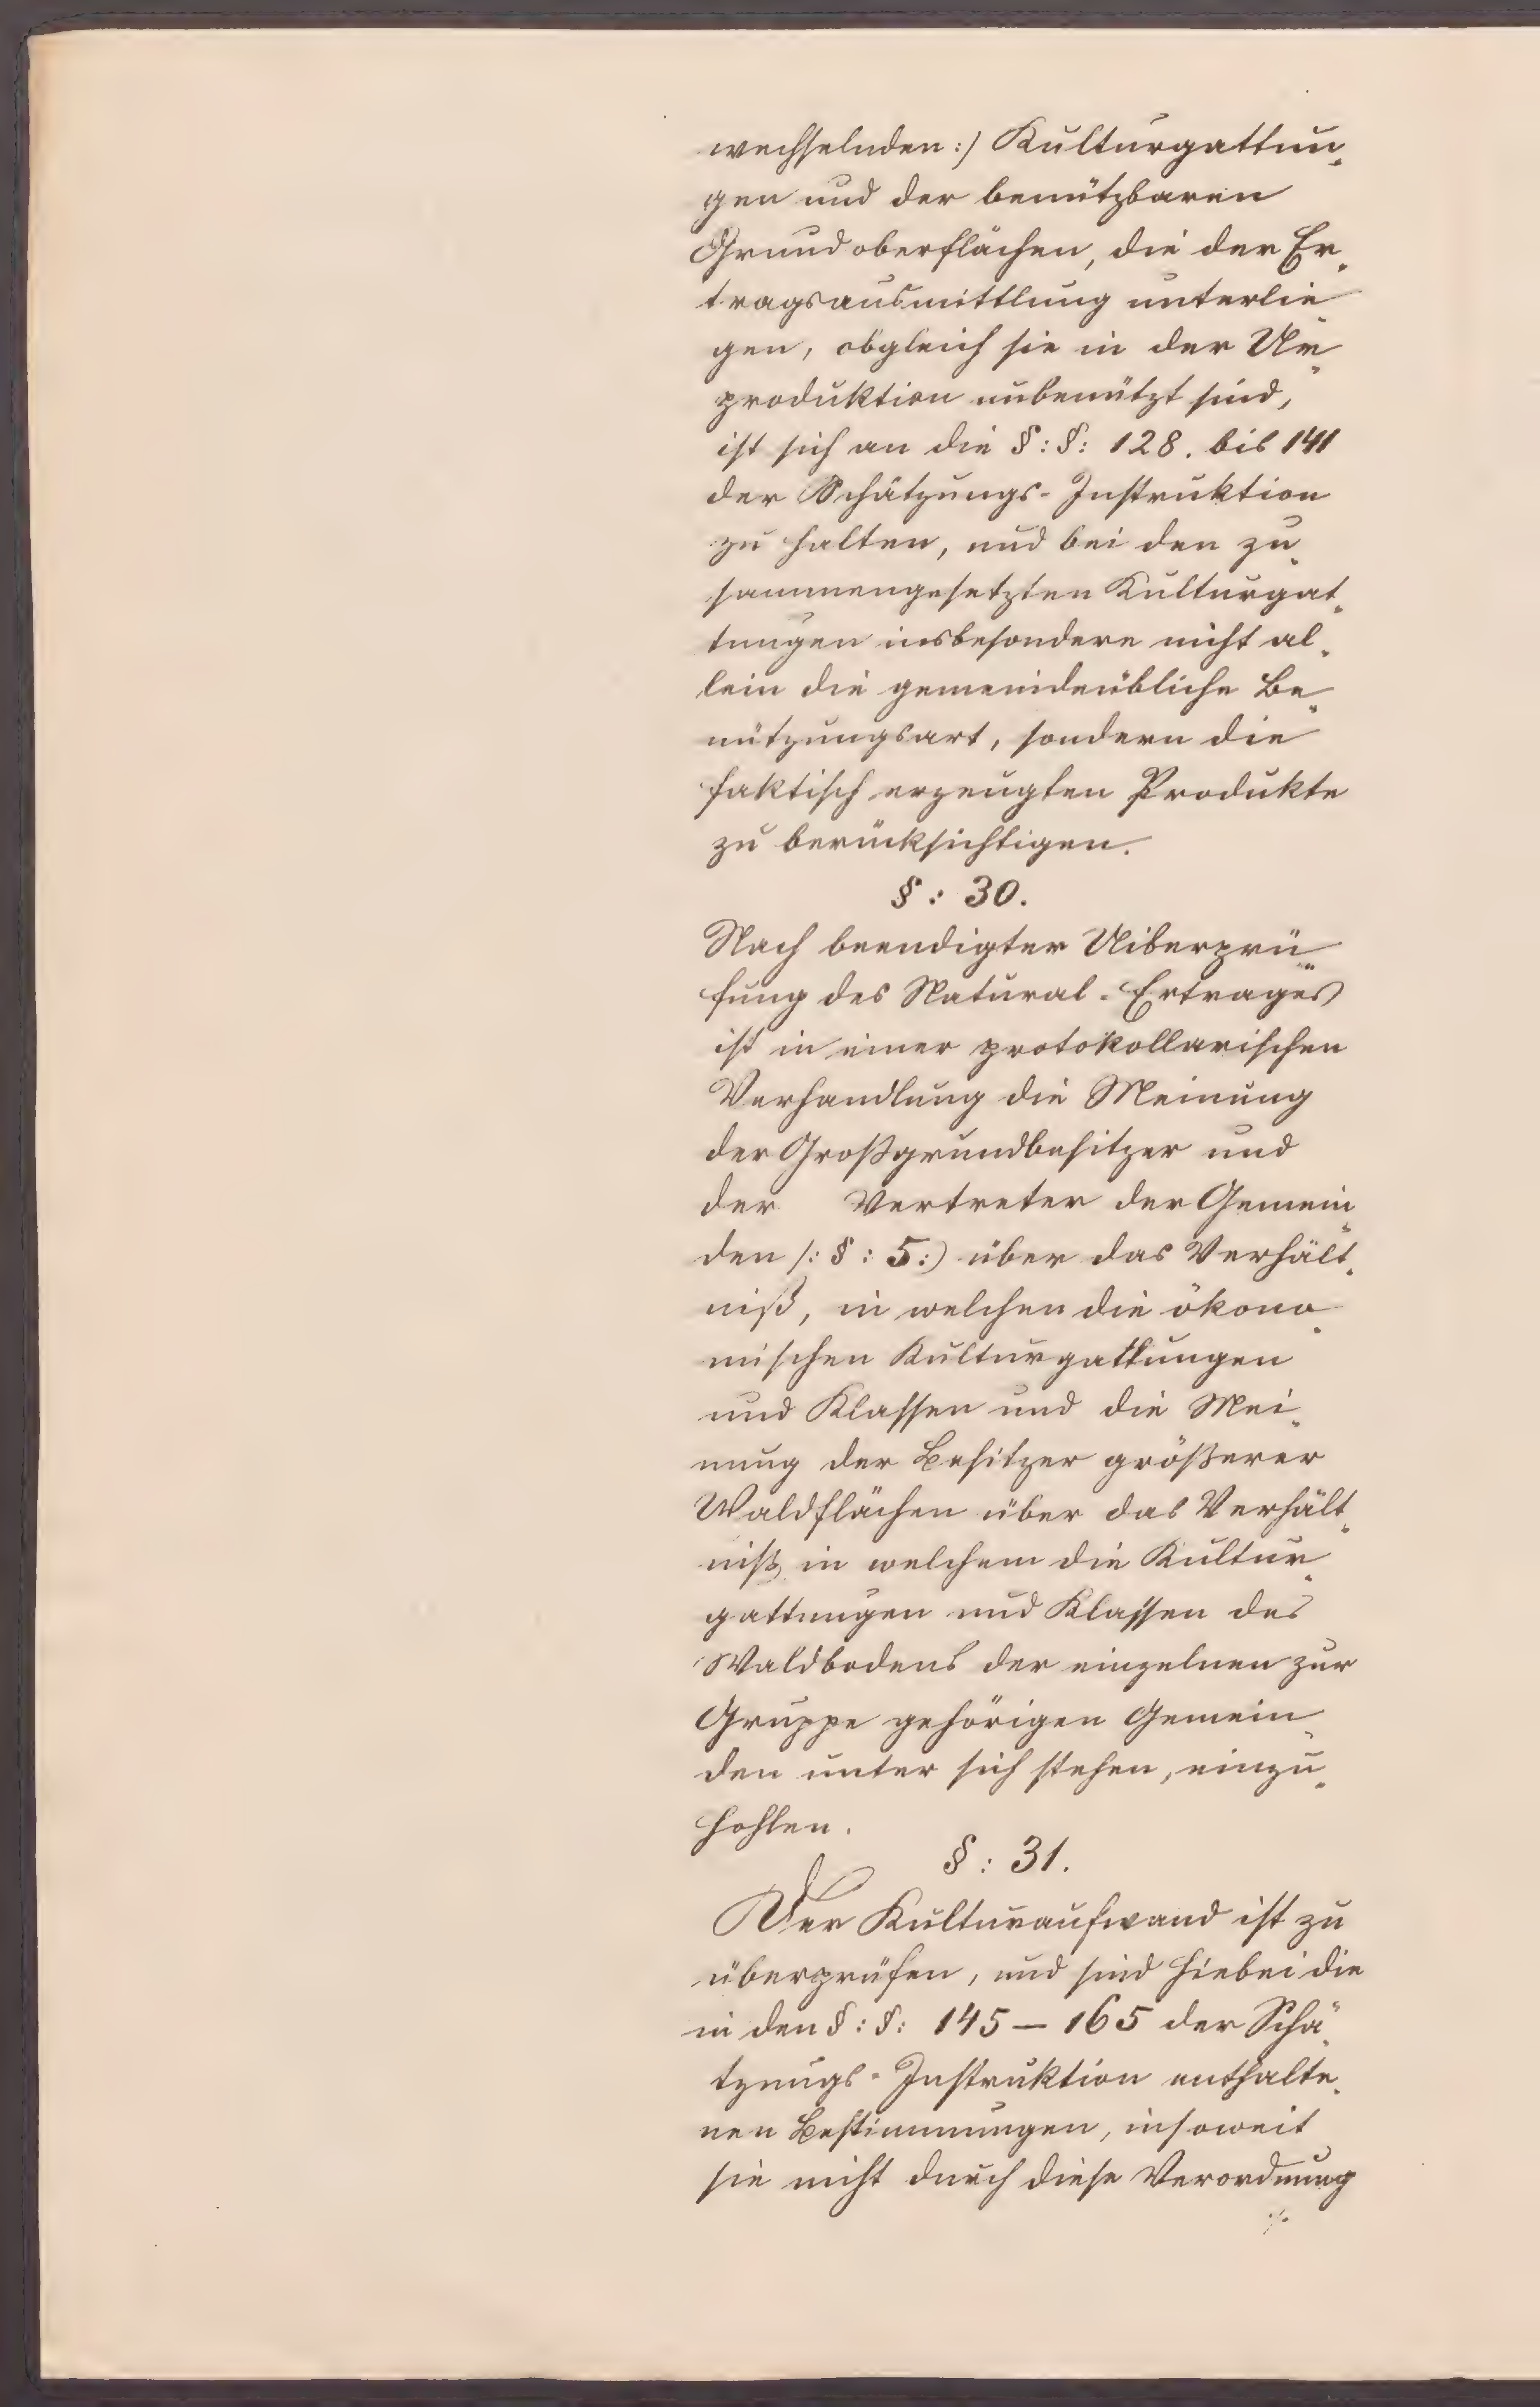 wechselnden :/ Kulturgattun„
gen und der benützbaren
Grundoberflächen, die der Er„
tragsausmittlung unterlie„
gen, obgleich sie in der Ur„
produktion unbenützt sind,
ist sich an die §:§: 128. bis 141
der Schätzungs-Instruktion
zu halten, und bei den zu„
sammengesetzten Kulturgat„
tungen insbesondere nicht al„
lein die gemeindeübliche Be„
nützungsart, sondern die
faktisch erzeugten Produkte
zu berücksichtigen.
§: 30.
Nach beendigter Uiberprü„
fung des Natural-Ertrages
ist in einer protokollarischen
Verhandlung die Meinung
der Großgrundbesitzer und
der Vertreter der Gemein„
den /: §: 5:) über das Verhält„
niß, in welchen die ökono„
mischen Kulturgattungen
und Klassen und die Mei„
nung der Besitzer größerer
Waldflächen über das Verhält„
niß, in welchem die Kultur„
gattungen und Klassen des
Waldbodens der einzelnen zur
Gruppe gehörigen Gemein„
den unter sich stehen, einzu„
hohlen.
§: 31.
Der Kulturaufwand ist zu
überprüfen, und sind hiebei die
in den §:§: 145 – 165 der Schä„
tzungs-Instruktion enthalte„
nen Bestimmungen, insoweit
sie nicht durch diese Verordnung
./.